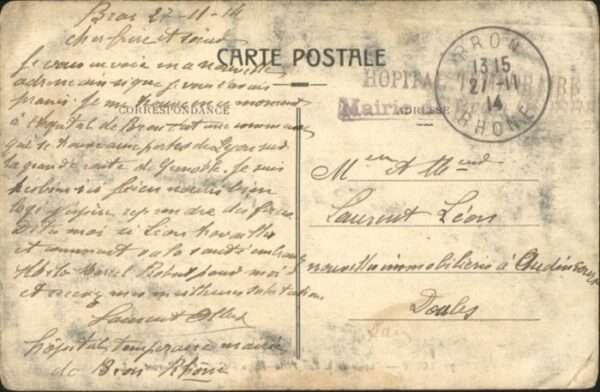 Bron 27-11-14
Cher frère et sœur
Je vous envoie ma nouvelle
adresse ainsi que je vous l'avais
promis. Je me trouve en ce moment
à l'hôpital de Bron c'est une commune
qui se trouve aux portes de Lyon sur
la grande route de Grenoble. Je suis
bien nourri bien
logé j'espère reprendre des forces
Dites moi si Léon travaille
et comment va la santé
Marcel Robert pour moi
et recevez mes meilleures salutations
Laurent
hôpital temporaire mairie
de Bron Rhône
CARTE POSTALE
CORRESPONDANCE
ADRESSE
HOPITAL TEMPORAIRE
Mairie
BRON
13 15
27-11
14
RHONE
M et Mme
Laurent Léon
immobilière à Audincourt
Doubs